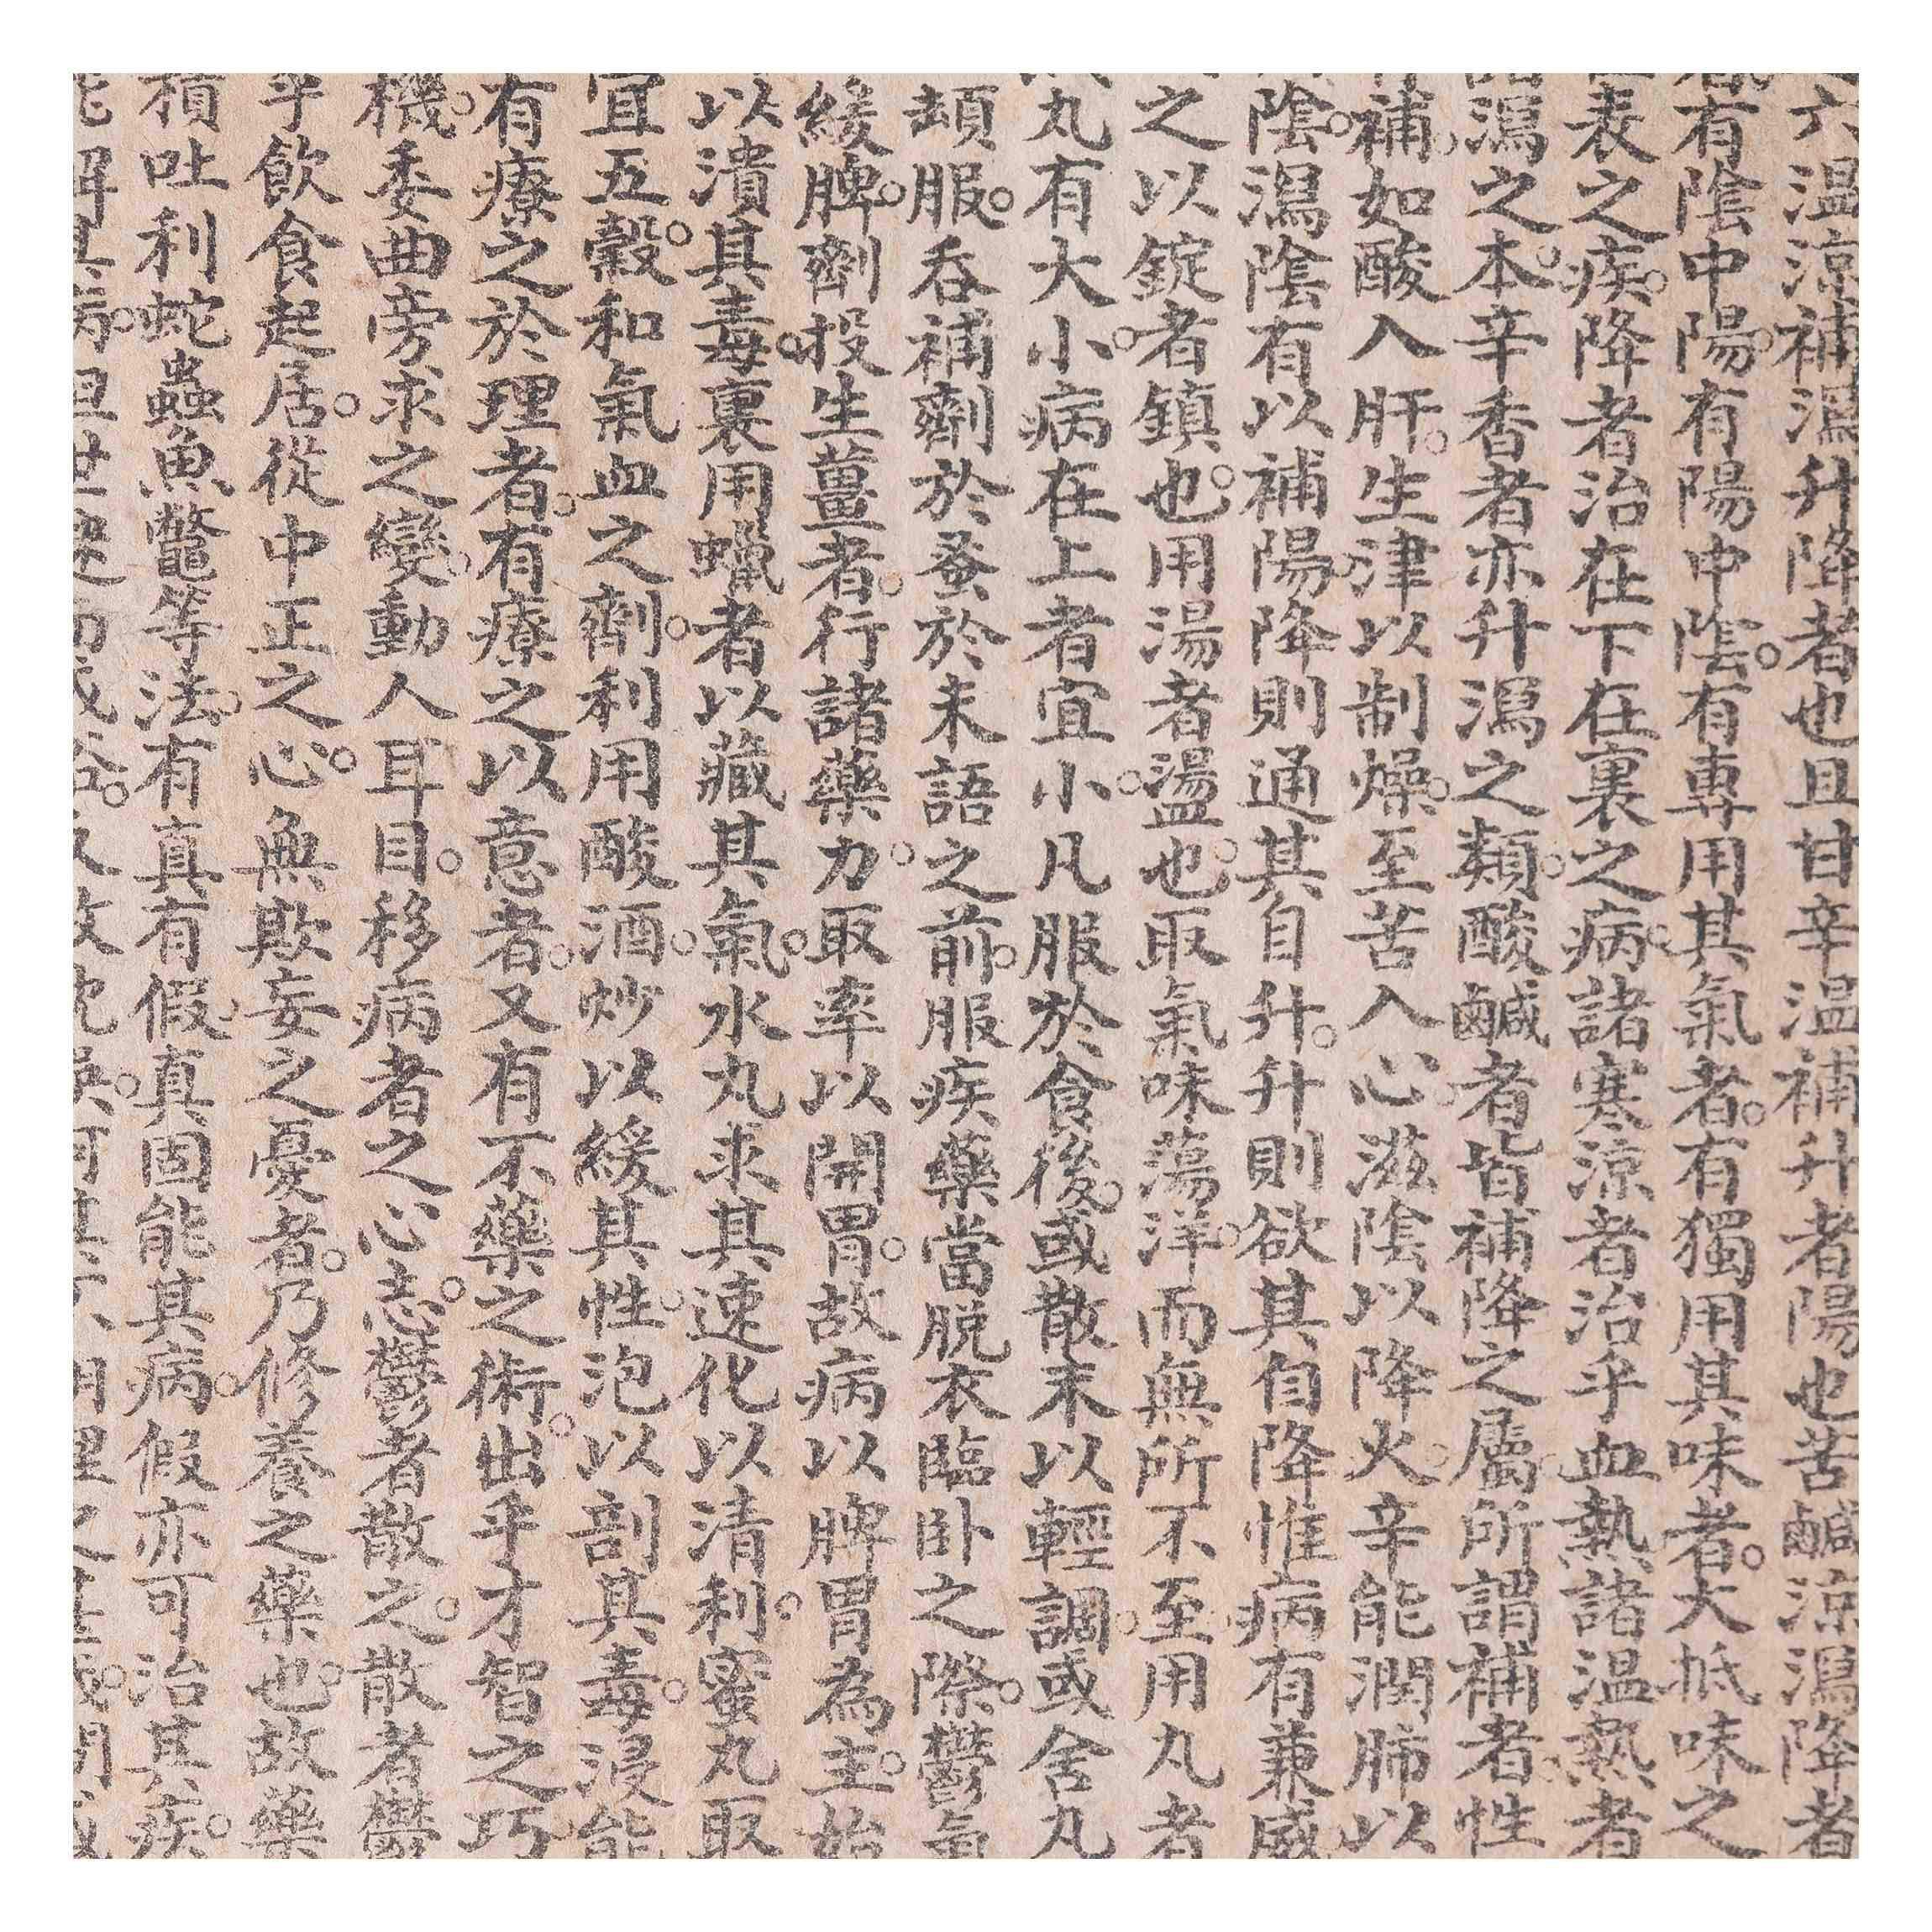 六温涼補瀉升降者也且甘辛温補升者陽也苦鹹涼瀉降者
有陰中陽有陽中陰。有專用其氣者。有獨用其味者。大抵味之
表之疾。降者治在下在裏之病。諸寒涼者治乎血熱諸温熱者
瀉之本。辛香者亦升瀉之類。酸鹹者皆補降之屬。所謂補者。性
補。如酸入肝。生津以制燥。至苦入心。滋陰以降火。辛能潤肺以
陰。瀉陰有以補陽。降則通其自升。升則欲其自降惟病有兼威
之以錠者鎮也。用湯者盪也。取氣味蕩洋。而無所不至用丸者
丸有大小。病在上者宜小。凡服於食後。或散末以輕調。或舍丸
頡服。吞補劑於蚤於未語之前。服疾藥當脱衣臨卧之際。鬱氣
緩脾。劑投生薑者。行諸藥力。取率以開胃。故病以脾胃為主。始
以潰其毒。裏用蠟者以藏其氣。水丸求其速化以清利。蜜丸取
宜五穀。和氣血之劑。利用酸酒。炒以緩其性。泡以剖其毒。浸能
有療之於理者。有療之以意者。又有不藥之術。出乎才智之巧
機。委曲旁求之變。動人耳目。移病者之心志。鬱者散之。散者鬱
乎飲食起居。從中正之心。無欺妄之憂者。乃修養之藥也。故藥
積吐利蛇蟲魚鼈等法。有真有假。真固能其病。假亦可治其疾。